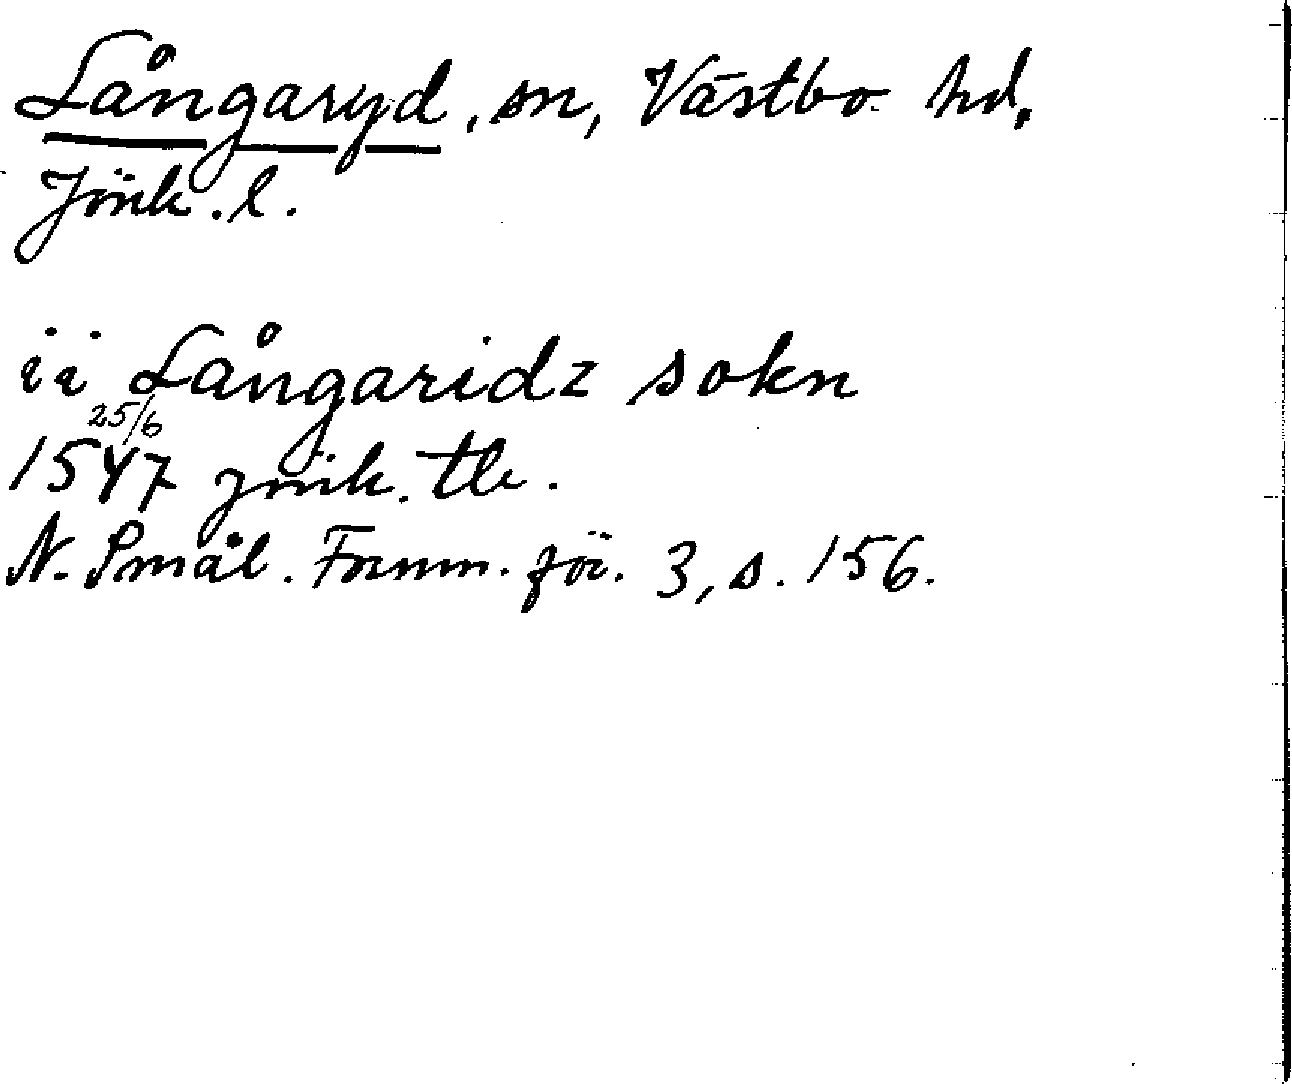 Långaryd, sn, Västbo hd,
Jönk. l.
ii Långaridz sokn
25/6
1547 jönk. tb.
N. Smål. Fornm. för. 3, s. 156.